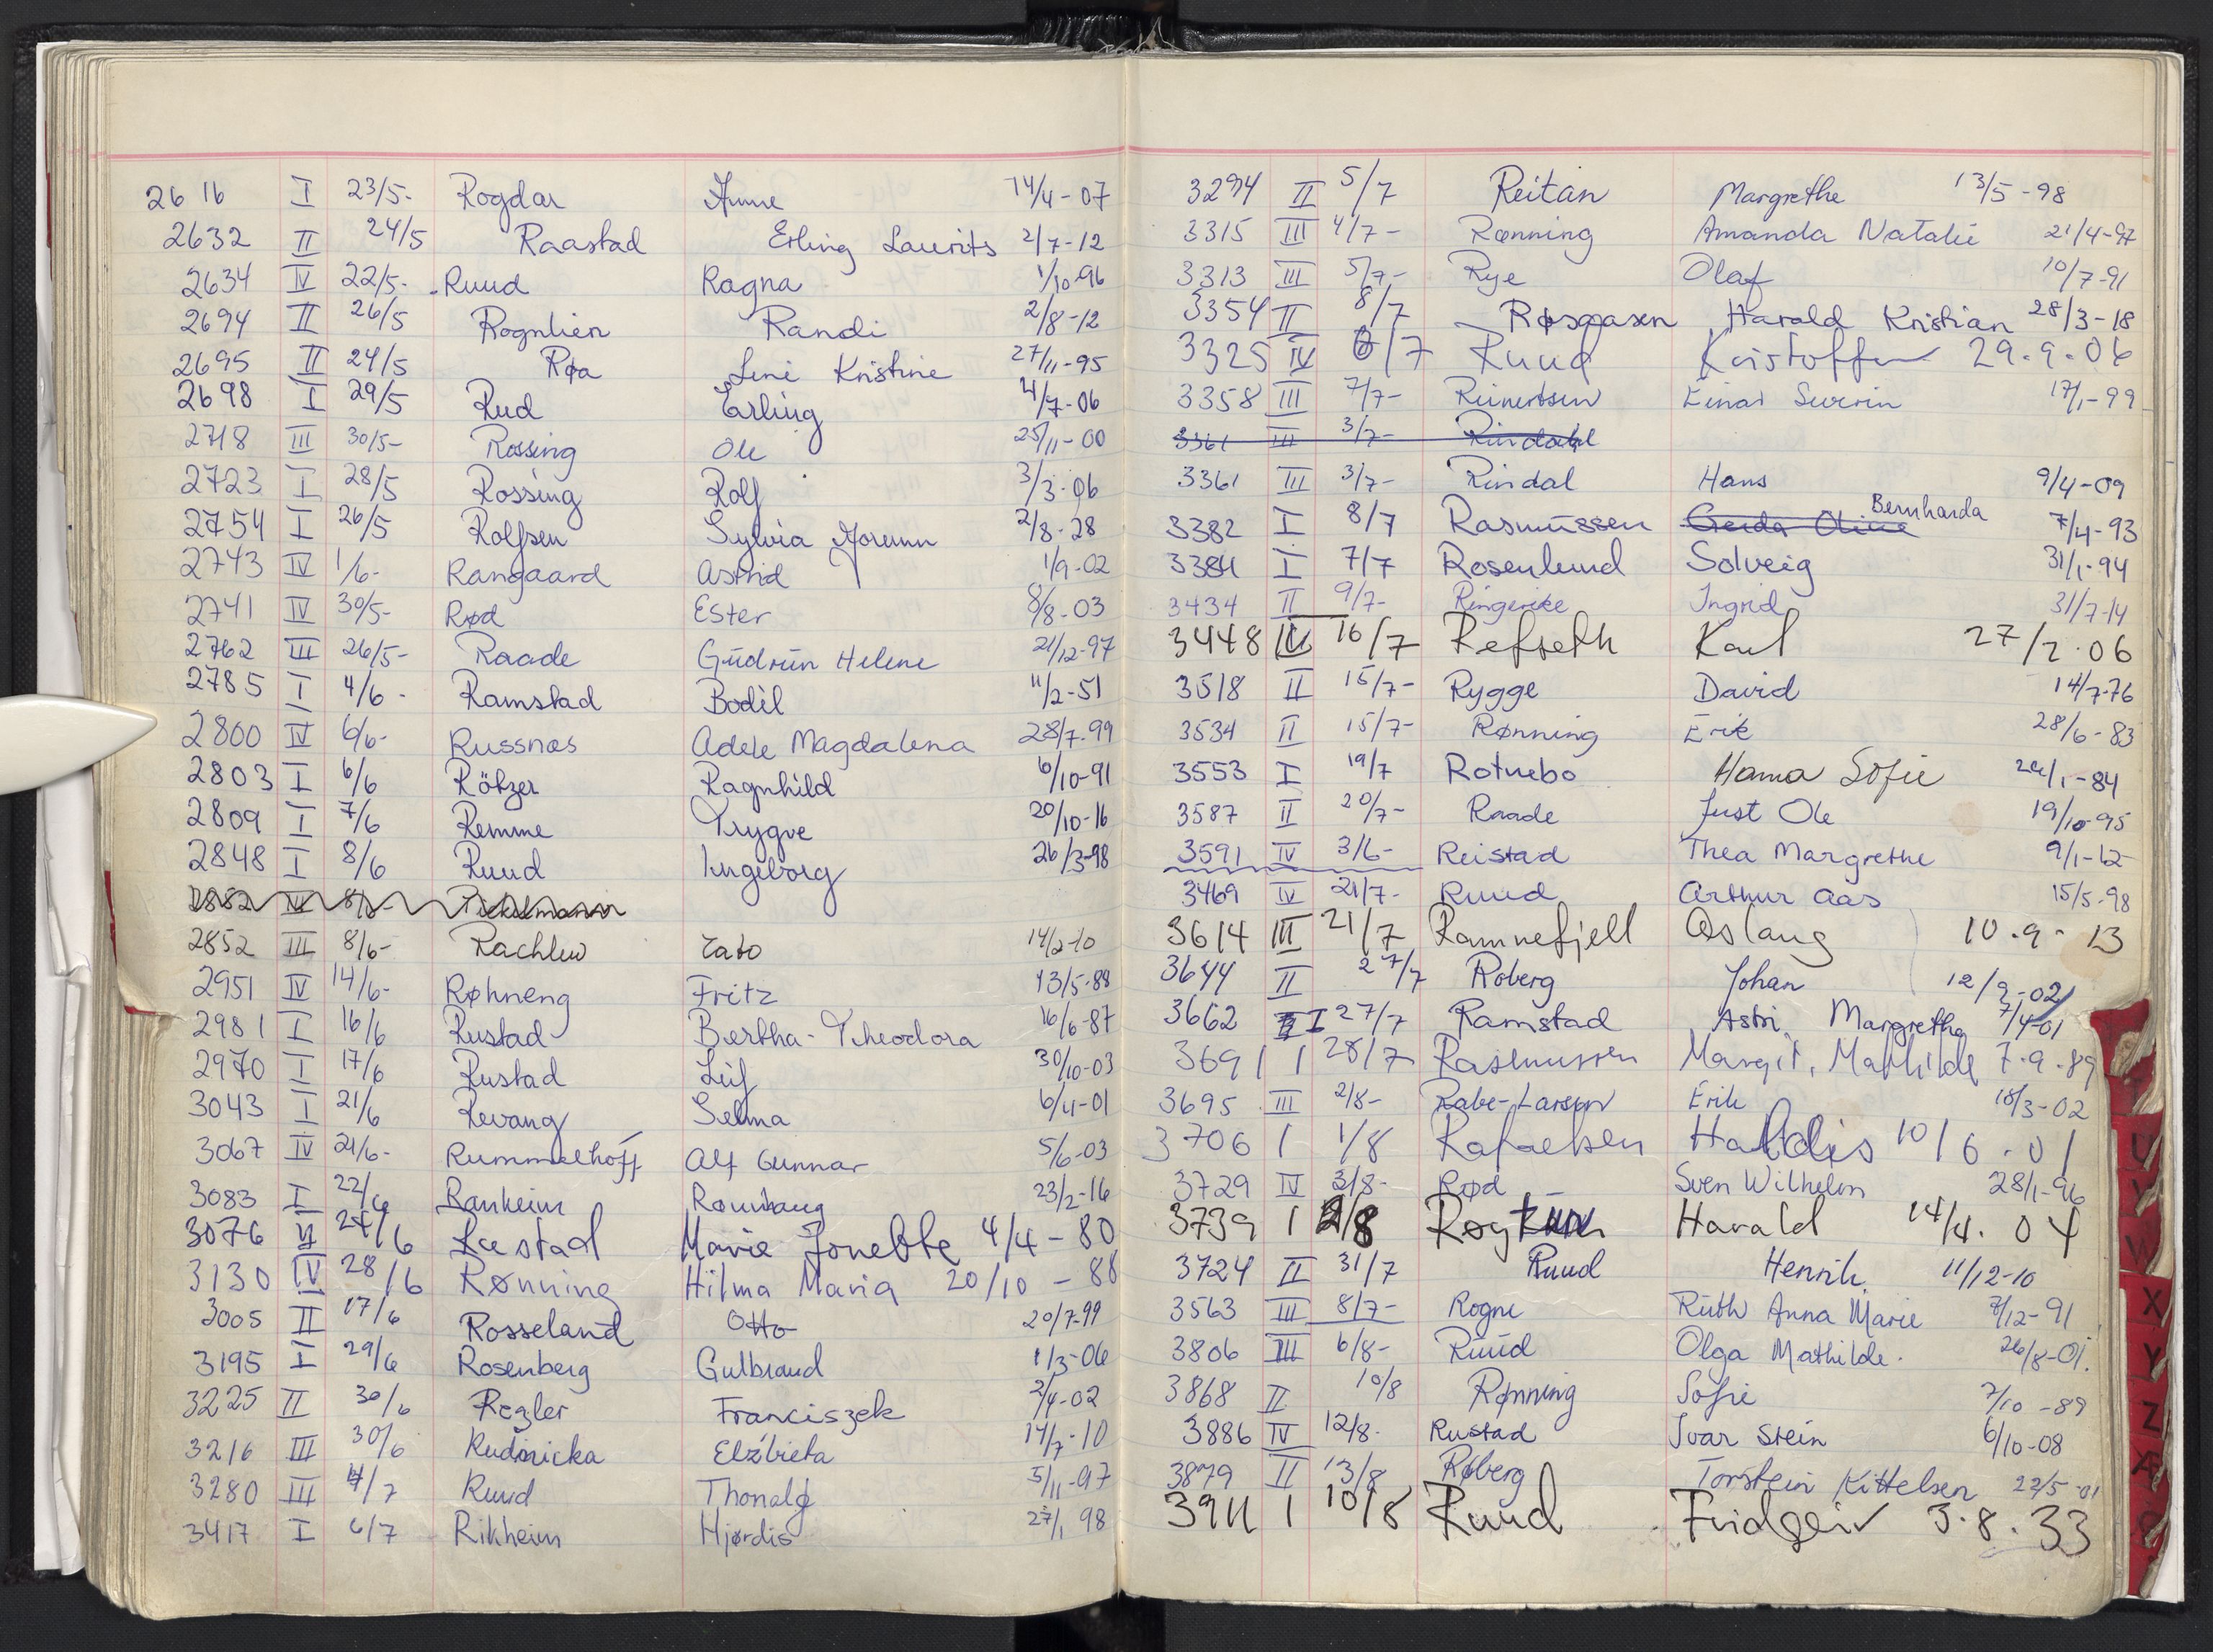 2616 I 23/5- Rogdar Anne 14/4-07
2632 II 24/5 Raastad Erling Laurits 2/7-12
2634 IV 22/5- Ruud Ragna 1/10-96
2694 II 26/5 Rognlien Randi 2/8-12
2695 II 24/5 Røa Line Kristine 27/11-95
2698 I 29/5 Rud Erling 4/7-06
2718 III 30/5- Rossing Ole 25/11-00
2723 I 28/5 Rossing Rolf 3/3-06
2754 I 26/5 Rolfsen Sylvia Jorunn 2/8-28
2743 IV 1/6- Rangaard Astrid 1/9-02
2741 IV 30/5- Rød Ester 8/8-03
2762 III 26/5- Raade Gudrun Helene 21/12-97
2785 I 4/6- Ramstad Bodil 11/2-51
2800 IV 6/6- Russnas Adele Magdalena 28/7-99
2803 I 6/6 Rötzer Ragnhild 6/10-91
2809 I 7/6 Remme Trygve 20/10-16
2848 I 8/6 Ruud Ingeborg 26/3-98
2852 IV 8/6-
2852 III 8/6- Rachlew 14/2-10
2951 IV 14/6- Røhneng Fritz 13/5-88
2981 I 16/6 Rustad Bertha-Theodora 16/6-87
2970 I 17/6 Rustad Leif 30/10-03
3043 I 21/6 Revang Selma 6/4-01
3067 IV 21/6- Rummelhoff Alf Gunnar 5/6-03
3083 I 22/6 Ranheim Rønnaug 23/2-16
3076 24/6 Rastad Marie Jonette 4/4-80
3130 IV 28/6 Rønning Hilma Maria 20/10-88
3005 II 17/6 Rosseland Otto 20/7-99
3195 I 29/6 Rosenberg Gulbrand 1/3-06
3225 II 30/6 Rezler Franciszek 2/4-02
3216 III 30/6 Rudnicka Elżbieta 14/7-10
3280 III 4/7 Ruud Thonalf 5/11-97
3417 I 6/7 Rikheim Hjørdis 27/1 98
3294 II 5/7 Reitan Margrethe 13/5-98
3315 III 4/7- Rønning Amanda Natalie 21/4-97
3313 III 5/7- Rye Olaf 10/7-91
3354 II 8/7 Røsaasen Harald Kristian 28/3-18
3325 IV 6/7 Ruud Kristoffer 29.9.06
3358 III 7/7- Reinertsen Einar Severin 17/1-99
3361 III 3/7- Rindahl
3361 III 3/7- Rindal Hans 9/4-09
3382 I 8/7 Rasmussen Gerda Oline Bernharda 7/4-93
3384 I 7/7 Rosenlund Solveig 31/1-94
3434 II 9/7- Ringerike Ingrid 31/7-14
3448 IV 16/7 Refseth Karl 27/2.06
3518 II 15/7- Rygge David 14/7-76
3534 II 15/7- Rønning Erik 28/6-83
3553 I 19/7 Rotnebo Hanna Sofie 24/1-84
3587 II 20/7- Raade Just Ole 19/10-95
3591 IV 3/6- Reistad Thea Margrethe 9/1-12
3469 IV 21/7- Ruud Arthur Aas 15/5-98
3614 III 21/7 Ramnefjell Aslaug 10.9-13
3644 II 27/7 Roberg Johan 12/9-02
3662 I 27/7 Ramstad Astri Margrethe 7/4-01
3691 I 28/7 Rasmussen Margit, Mathilde 7.9.89
3695 III 2/8- Rabe-Larsen Erik 18/3-02
3706 I 1/8 Rafaelsen Haldis 10/6.01
3729 IV 3/8- Rød Sven Wilhelm 28/1-96
3739 I 2/8 Harald 14/4.04
3724 II 31/7 Ruud Henrik 11/12-10
3563 III 8/7- Rogne Ruth Anna Marie 7/12-91
3806 III 6/8- Ruud Olga Mathilde. 26/8-01.
3868 II 10/8 Rønning Sofie 7/10-89
3886 IV 12/8- Rustad Ivar Stein 6/10-08
3879 II 13/8 Røberg Torstein Kittelsen 22/5-01
3911 I 10/8 Ruud Fridgeir 3.8.33
U
V
W
X
Y
Z
Æ
Ø